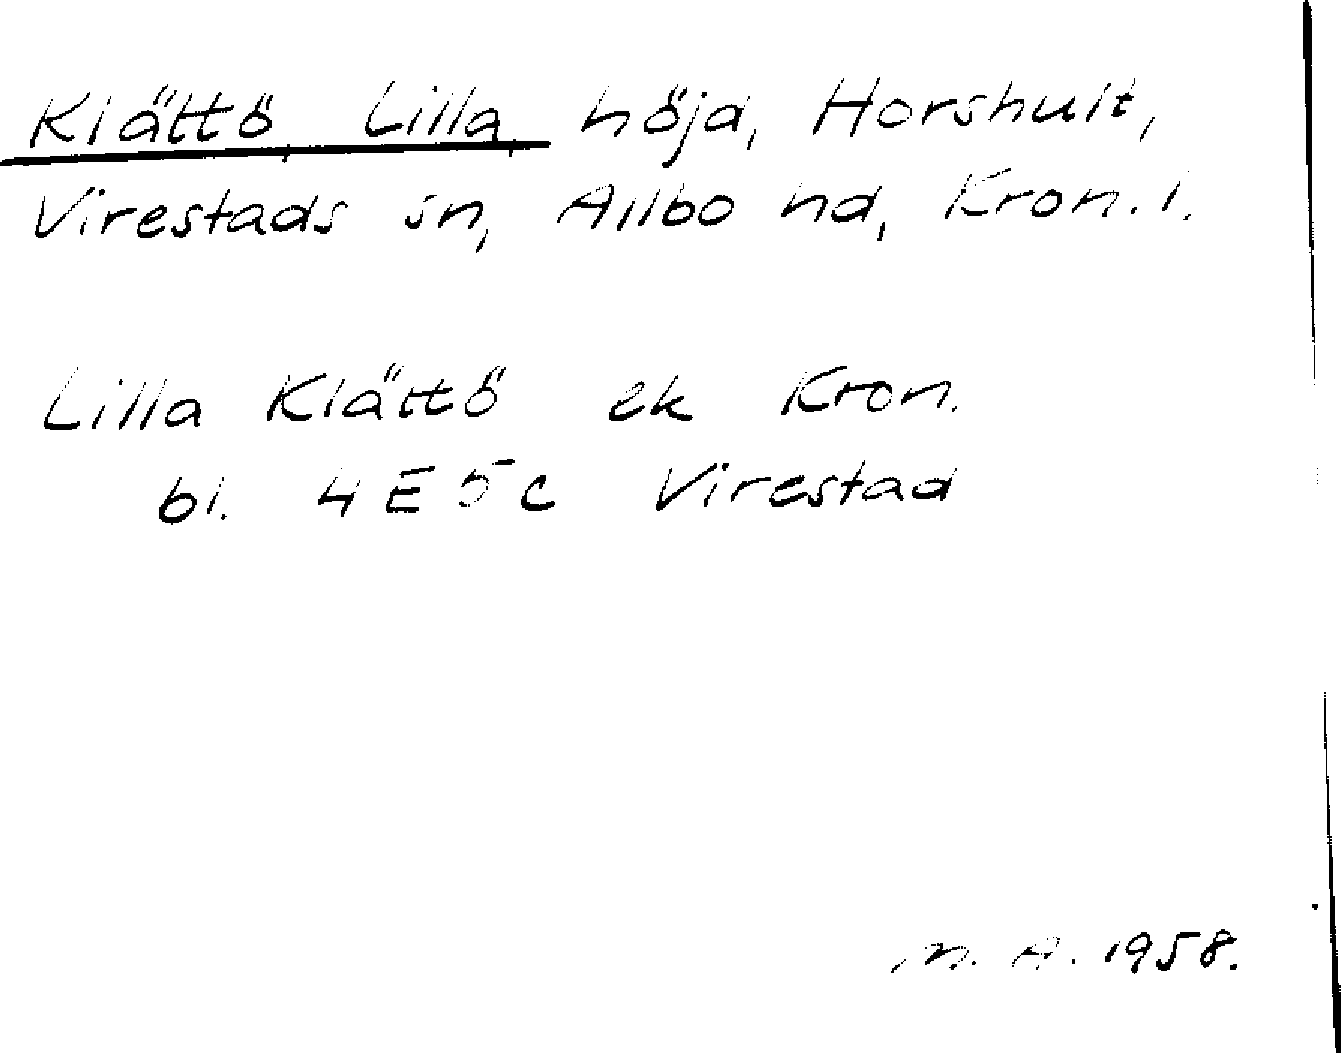 Klättö, Lilla, höjd, Horshult,
Virestads sn, Allbo hd, Kron. l.
Lilla Klättö ek Kron.
bl. 4E5c Virestad
M. A. 1958.